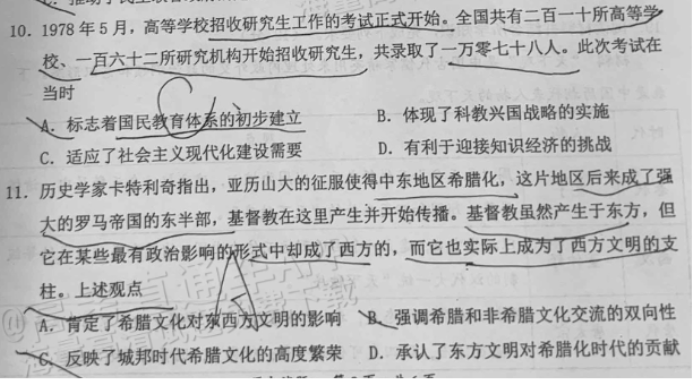 10. 1978年5月，高等学校招收研究生工作的考试正式开始。全国共有二百一十所高等学
校、一百六十二所研究机构开始招收研究生，共录取了一万零七十八人。此次考试在
当时
A. 标志着国民教育体系的初步建立 B. 体现了科教兴国战略的实施
C. 适应了社会主义现代化建设需要 D. 有利于迎接知识经济的挑战
11. 历史学家卡特利奇指出，亚历山大的征服使得中东地区希腊化，这片地区后来成了强
大的罗马帝国的东半部，基督教在这里产生并开始传播。基督教虽然产生于东方，但
它在某些最有政治影响的形式中却成了西方的，而它也实际上成为了西方文明的支
柱。上述观点
A. 肯定了希腊文化对东西方文明的影响 B. 强调希腊和非希腊文化交流的双向性
C. 反映了城邦时代希腊文化的高度繁荣 D. 承认了东方文明对希腊化时代的贡献